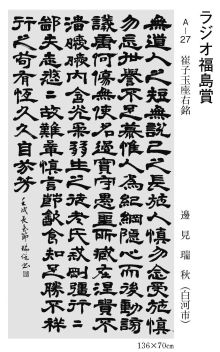 ラジオ福島賞
A−27 崔子玉座右銘
邊見瑞秋（白河市）
無道人之短無説己之長施人慎勿念受施慎
勿忘世譽不足慕惟仁為紀綱隠心而後動謗
議庸何傷無使名過實守愚聖所臧在涅貴不
淄曖曖内含光柔弱生之徒老氏誡剛強行行
鄙夫志悠悠故難量慎言節飲食知足勝不祥
行之苟有恒久久自芬芳
136×70cm